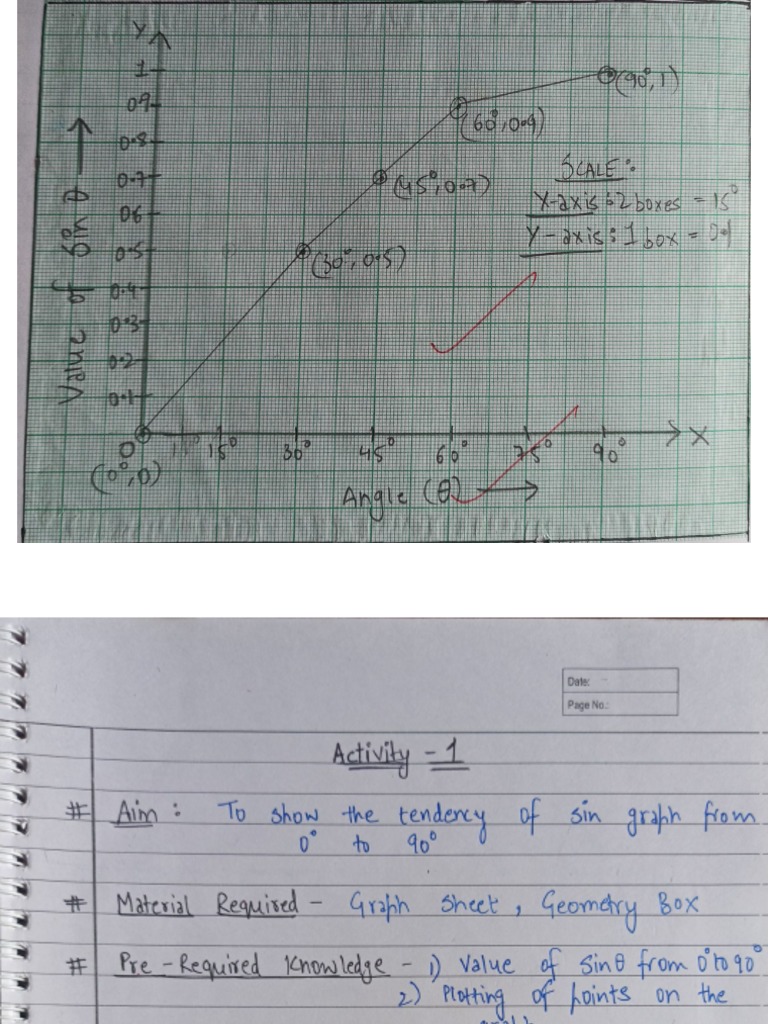 Y
1
0.9
0.8
0.7
0.6
0.5
0.4
0.3
0.2
0.1
Value of Sin θ
(90°, 1)
(60°, 0.9)
(45°, 0.7)
(30°, 0.5)
SCALE:
X-axis : 2 boxes = 15°
Y-axis : 1 box = 0.1
O
15° 30° 45° 60° 75° 90° X
(0°, 0)
Angle (θ)
Date:
Page No.:
Activity - 1
# Aim : To show the tendency of sin graph from
0° to 90°
# Material Required - Graph Sheet, Geometry Box
# Pre-Required Knowledge - 1) Value of sinθ from 0° to 90°
2) Plotting of points on the